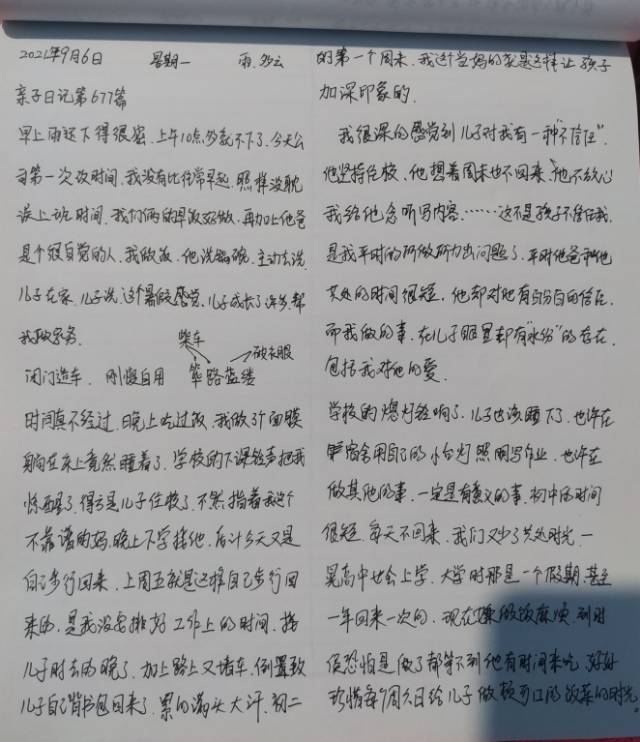 2021年9月6日 星期一 雨.多云
亲子日记第677篇
早上雨还下得很密.上午10点多就不下了.今天公
司第一次改时间.我没有比往常早起.照样没耽
误上班时间.我们俩的早饭好做.再加上他爸
是个很自觉的人.我做饭.他洗锅碗.主动去洗.
儿子在家.儿子说.这个暑假感觉.儿子成长了许多.帮
我做家务.
柴车
破衣服
闭门造车. 刚愎自用 筚路蓝缕
时间真不经过.晚上吃过饭.我做了个面膜
躺在床上竟然睡着了.学校的下课铃声把我
惊醒了.得亏是儿子住校了.不然.指着我这个
不靠谱的妈.晚上下学接他.估计今天又是
自己步行回来.上周五就是这样自己步行回
来的.是我没安排好工作上的时间.接
儿子时去的晚了.加上路上又堵车.倒置致
儿子自己背书包回来了.累的满头大汗.初二
的第一个周末.我这个当妈的就是这样让孩子
加深印象的.
我很深的感觉到儿子对我有一种"不信任".
他坚持住校.他想着周末也不回来.他不放心
我给他念听写内容……这不是孩子不信任我.
是我平时的所做所为出问题了.平时他爸和他
共处的时间很短.他却对他有百分百的信任.
而我做的事.在儿子眼里却有"水份"的存在.
包括我对他的爱.
学校的熄灯铃响了.儿子也该睡下了.也许在
宿舍用自己的小台灯照明写作业.也许在
做其他的事.一定是有意义的事.初中的时间
很短.每天不回来.我们又少了共处时光.一
晃高中也会上学.大学时那是一个假期.甚至
一年回来一次的.现在嫌做饭麻烦.到时
候恐怕是做了都等不到他有时间来吃.好好
珍惜每个周六日给儿子做顿可口的饭菜的时光.